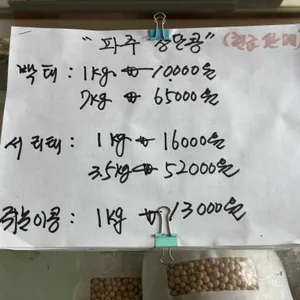 "파주 장단콩" (현금판매)
백태 : 1kg ₩ 10,000원
7kg ₩ 65000원
서리태 : 1kg ₩ 16000원
3.5kg ₩ 52000원
쥐눈이콩 : 1kg ₩ 13000원